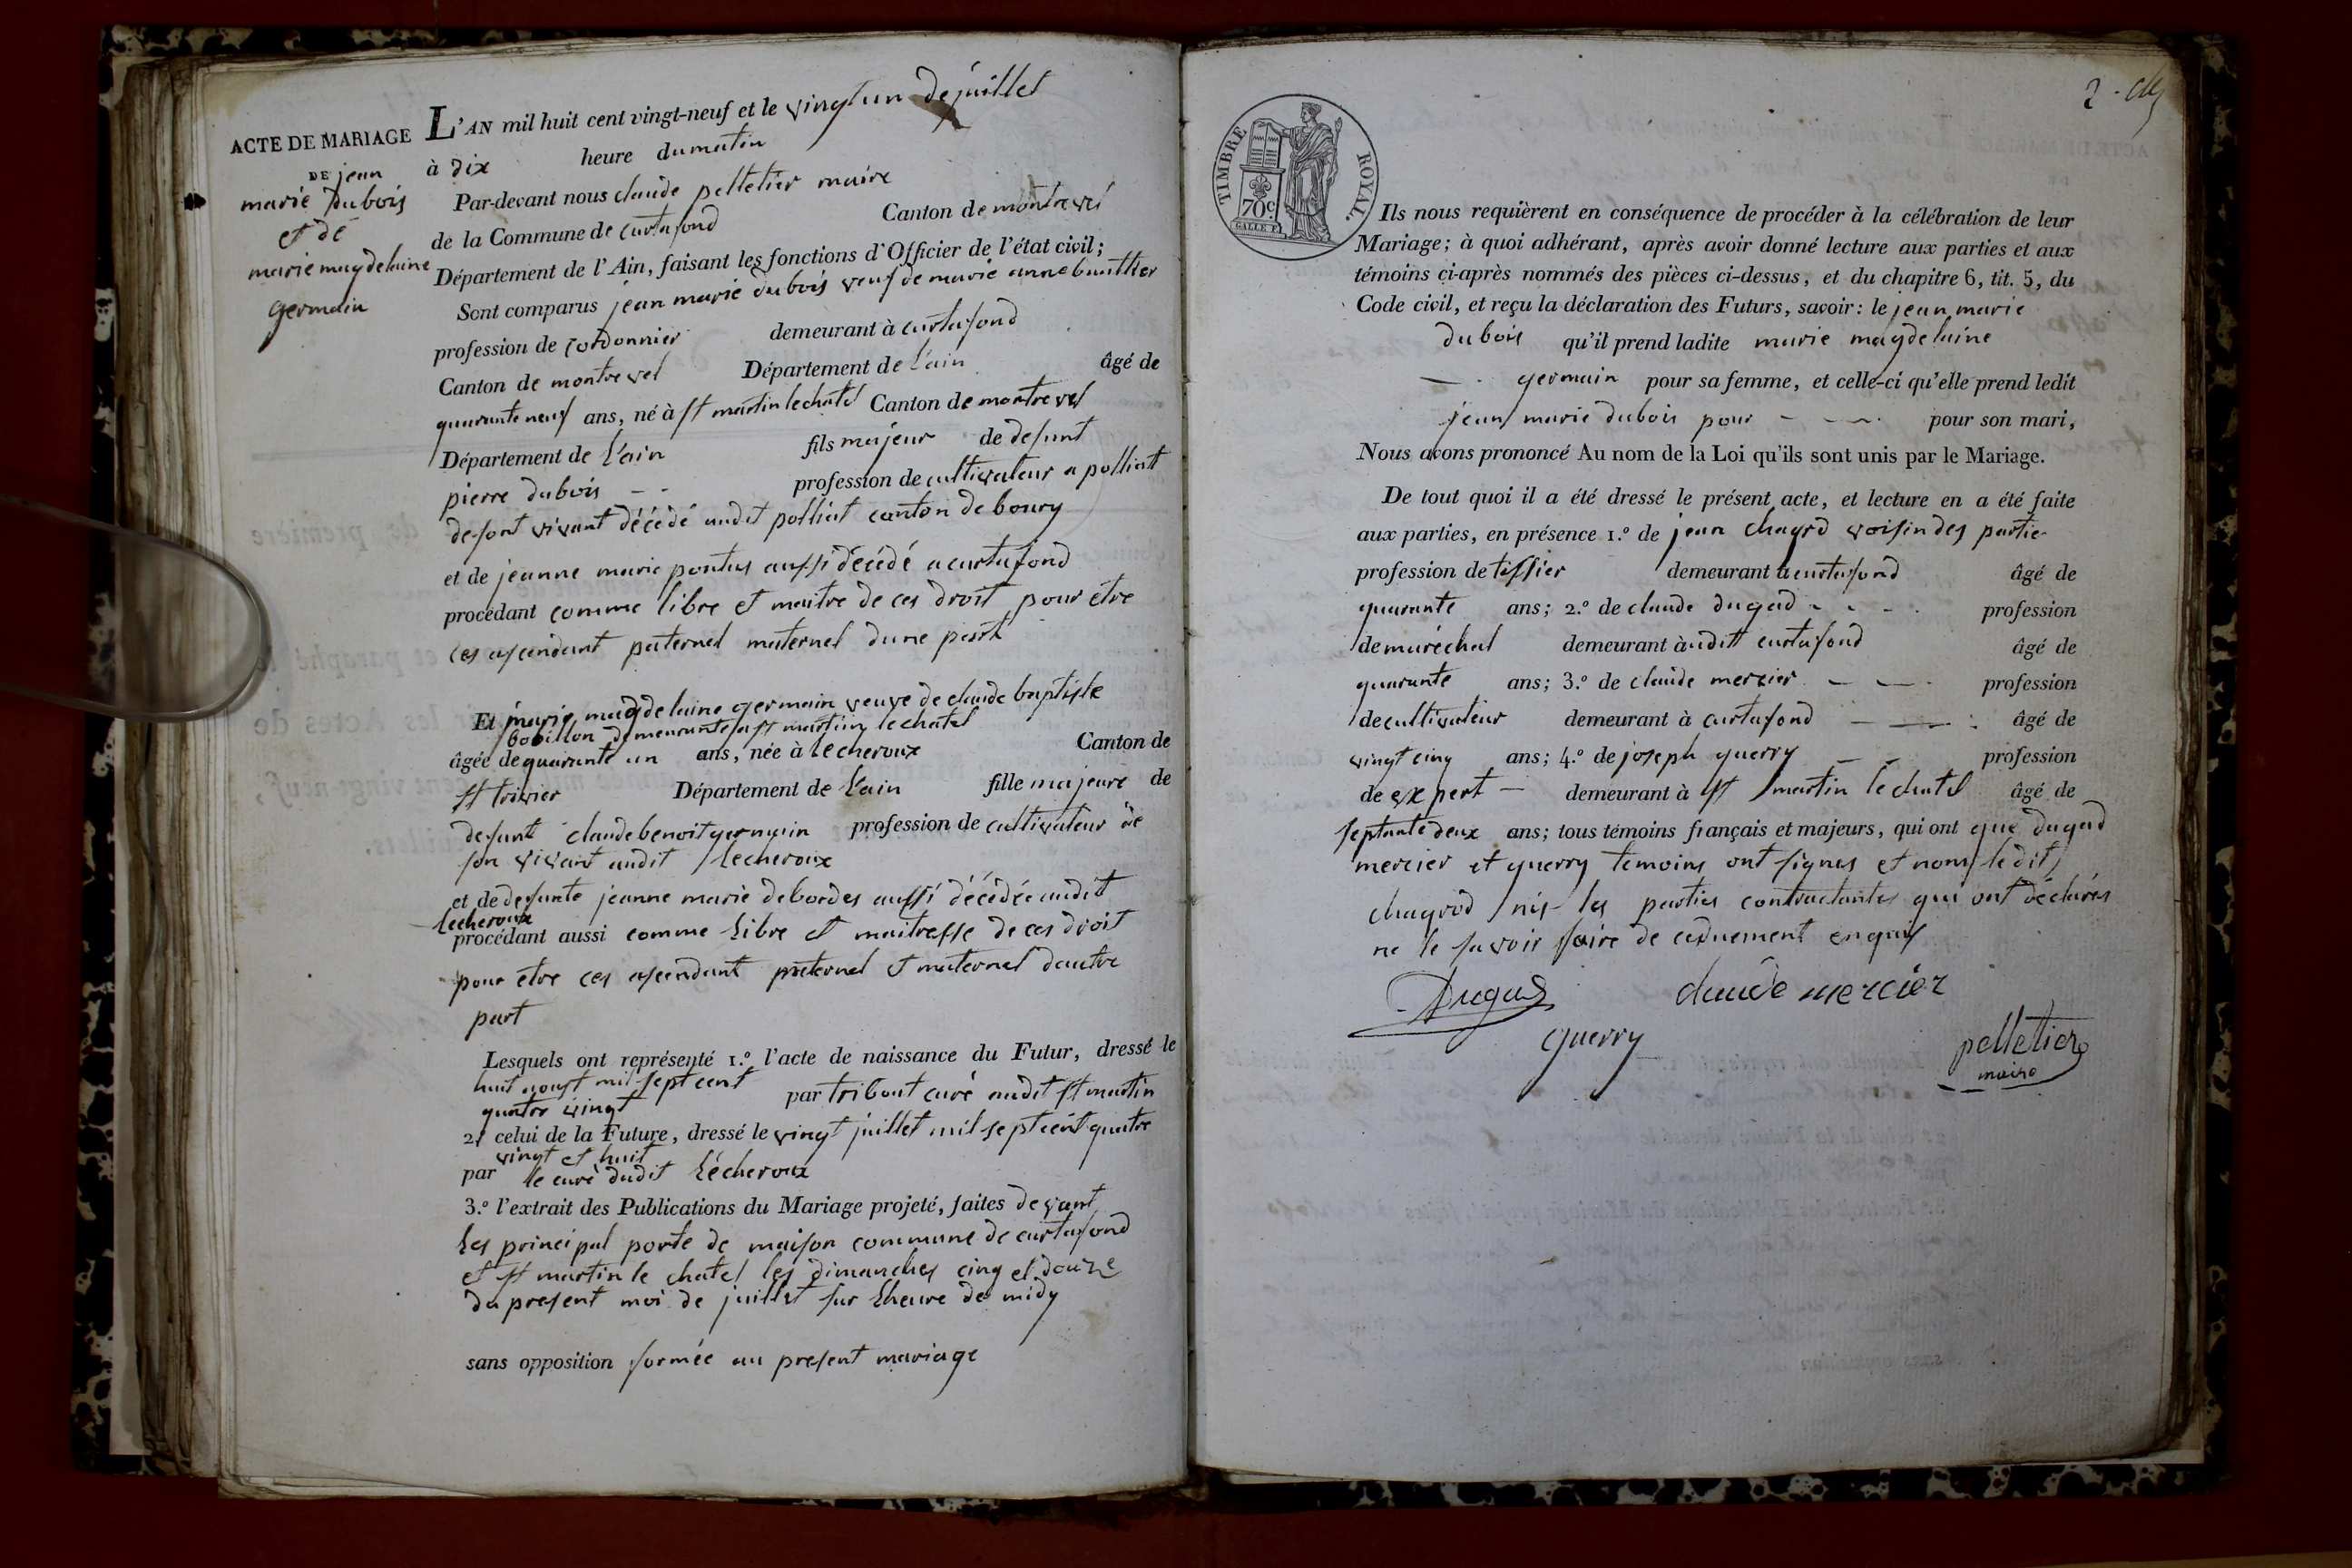 ACTE DE MARIAGE
DE jean
marie dubois
et de
marie magdelaine
germain
L'AN mil huit cent vingt-neuf et le vingt un de juillet
à dix heure du matin
Par-devant nous claude pelletier maire
de la Commune de curtafond Canton de montrevel
Département de l'Ain, faisant les fonctions d'Officier de l'état civil;
Sont comparus jean marie dubois veuf de marie anne
profession de cordonnier demeurant à curtafond
Canton de montrevel Département de L'ain âgé de
quarante neuf ans, né à st martin le chatel Canton de montrevel
Département de L'ain fils majeur de defunt
pierre dubois profession de cultivateur a polliat
de son vivant décédé audit polliat canton de bourg
et de jeanne marie pontus aussi décédé a curtafond
procédant comme libre et maitre de ces droit pour etre
ces asendant paternel maternel dune part
Et marie magdelaine germain veuve de claude baptiste
bobillon demeurante a st martin le chatel
âgée de quarante un ans, née à lecheroux Canton de
st trivier Département de L'ain fille majeure de
defunt claude benoit germain profession de cultivateur de
son vivant audit lecheroux
et de defunte jeanne marie debordes aussi décédée audit
lecheroux
procédant aussi comme Libre et maitresse de ces droit
pour etre ces asendant paternel et maternel dautre
part
Lesquels ont représenté 1.º l'acte de naissance du Futur, dressé le
huit aoust mil sept cent
quatre vingt par tribout curé audit st martin
2.º celui de la Future, dressé le vingt juillet mil sept cent quatre
vingt et huit
par le curé dudit Lécheroux
3.º l'extrait des Publications du Mariage projeté, faites devant
Les principal porte de maison commune de curtafond
et st martin le chatel les dimanches cinq et douze
du present moi de juillet sur Lheure de midy
sans opposition formée au present mariage
2.
TIMBRE ROYAL.
70c.
GALLE F.
Ils nous requièrent en conséquence de procéder à la célébration de leur
Mariage; à quoi adhérant, après avoir donné lecture aux parties et aux
témoins ci-après nommés des pièces ci-dessus, et du chapitre 6, tit. 5, du
Code civil, et reçu la déclaration des Futurs, savoir: le jean marie
dubois qu'il prend ladite marie magdelaine
germain pour sa femme, et celle-ci qu'elle prend ledit
jean marie dubois pour pour son mari,
Nous avons prononcé Au nom de la Loi qu'ils sont unis par le Mariage.
De tout quoi il a été dressé le présent acte, et lecture en a été faite
aux parties, en présence 1.º de jean voisin des partie
profession de tissier demeurant à curtafond âgé de
quarante ans; 2.º de claude dugad profession
de maréchal demeurant à udit curtafond âgé de
quarante ans; 3.º de claude mercier profession
de cultivateur demeurant à curtafond âgé de
vingt cinq ans; 4.º de joseph guerry profession
de expert demeurant à st martin le chatel âgé de
septante deux ans; tous témoins français et majeurs, qui ont que dugad
mercier et guerry temoins ont signes et nom ledit
chagrod nis les parties contractantes qui ont déclarés
ne le savoir faire de cednement enquis
Dugad claude mercier
guerry
pelletier
maire